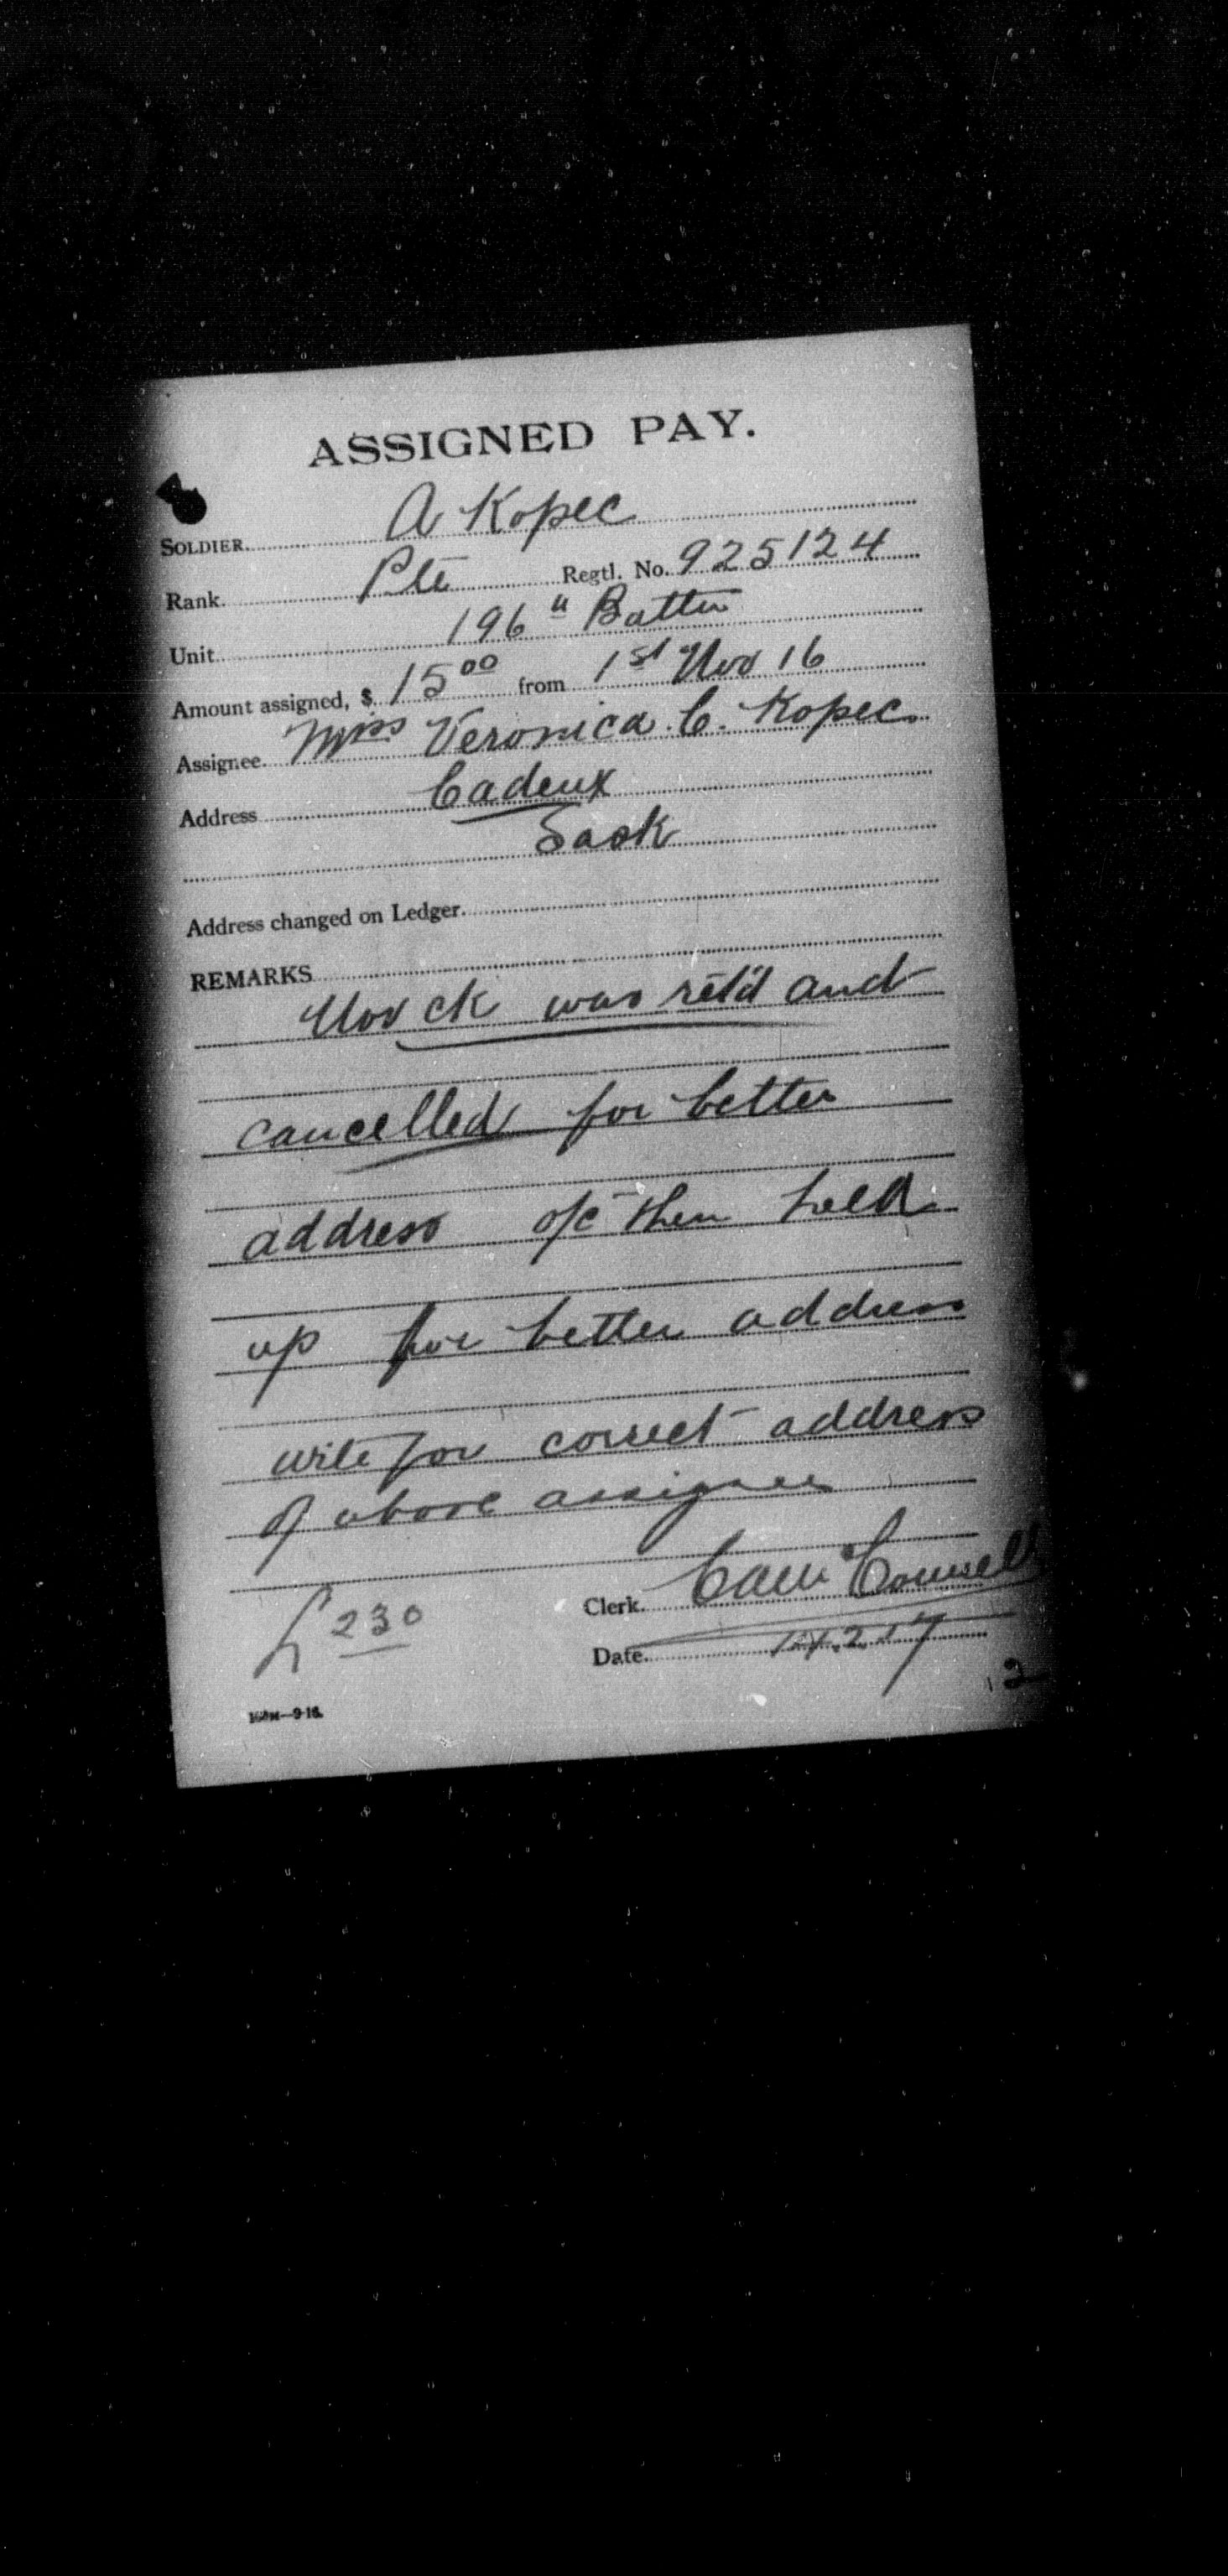 ASSIGNED PAY.
SOLDIER A Kopec
Rank Pte Regtl. No. 925124
Unit 196" Battn
Amount assigned, $ 15 00 from 1st Nov 16
Assignee Miss Veronica C. Kopec
Address Cadeux
Sask
Address changed on Ledger
REMARKS
Nov ck was ret'd and
cancelled for better
address o/c then held
up for better address
write for correct address
of above assignee
230
Clerk
Date 2.17
2